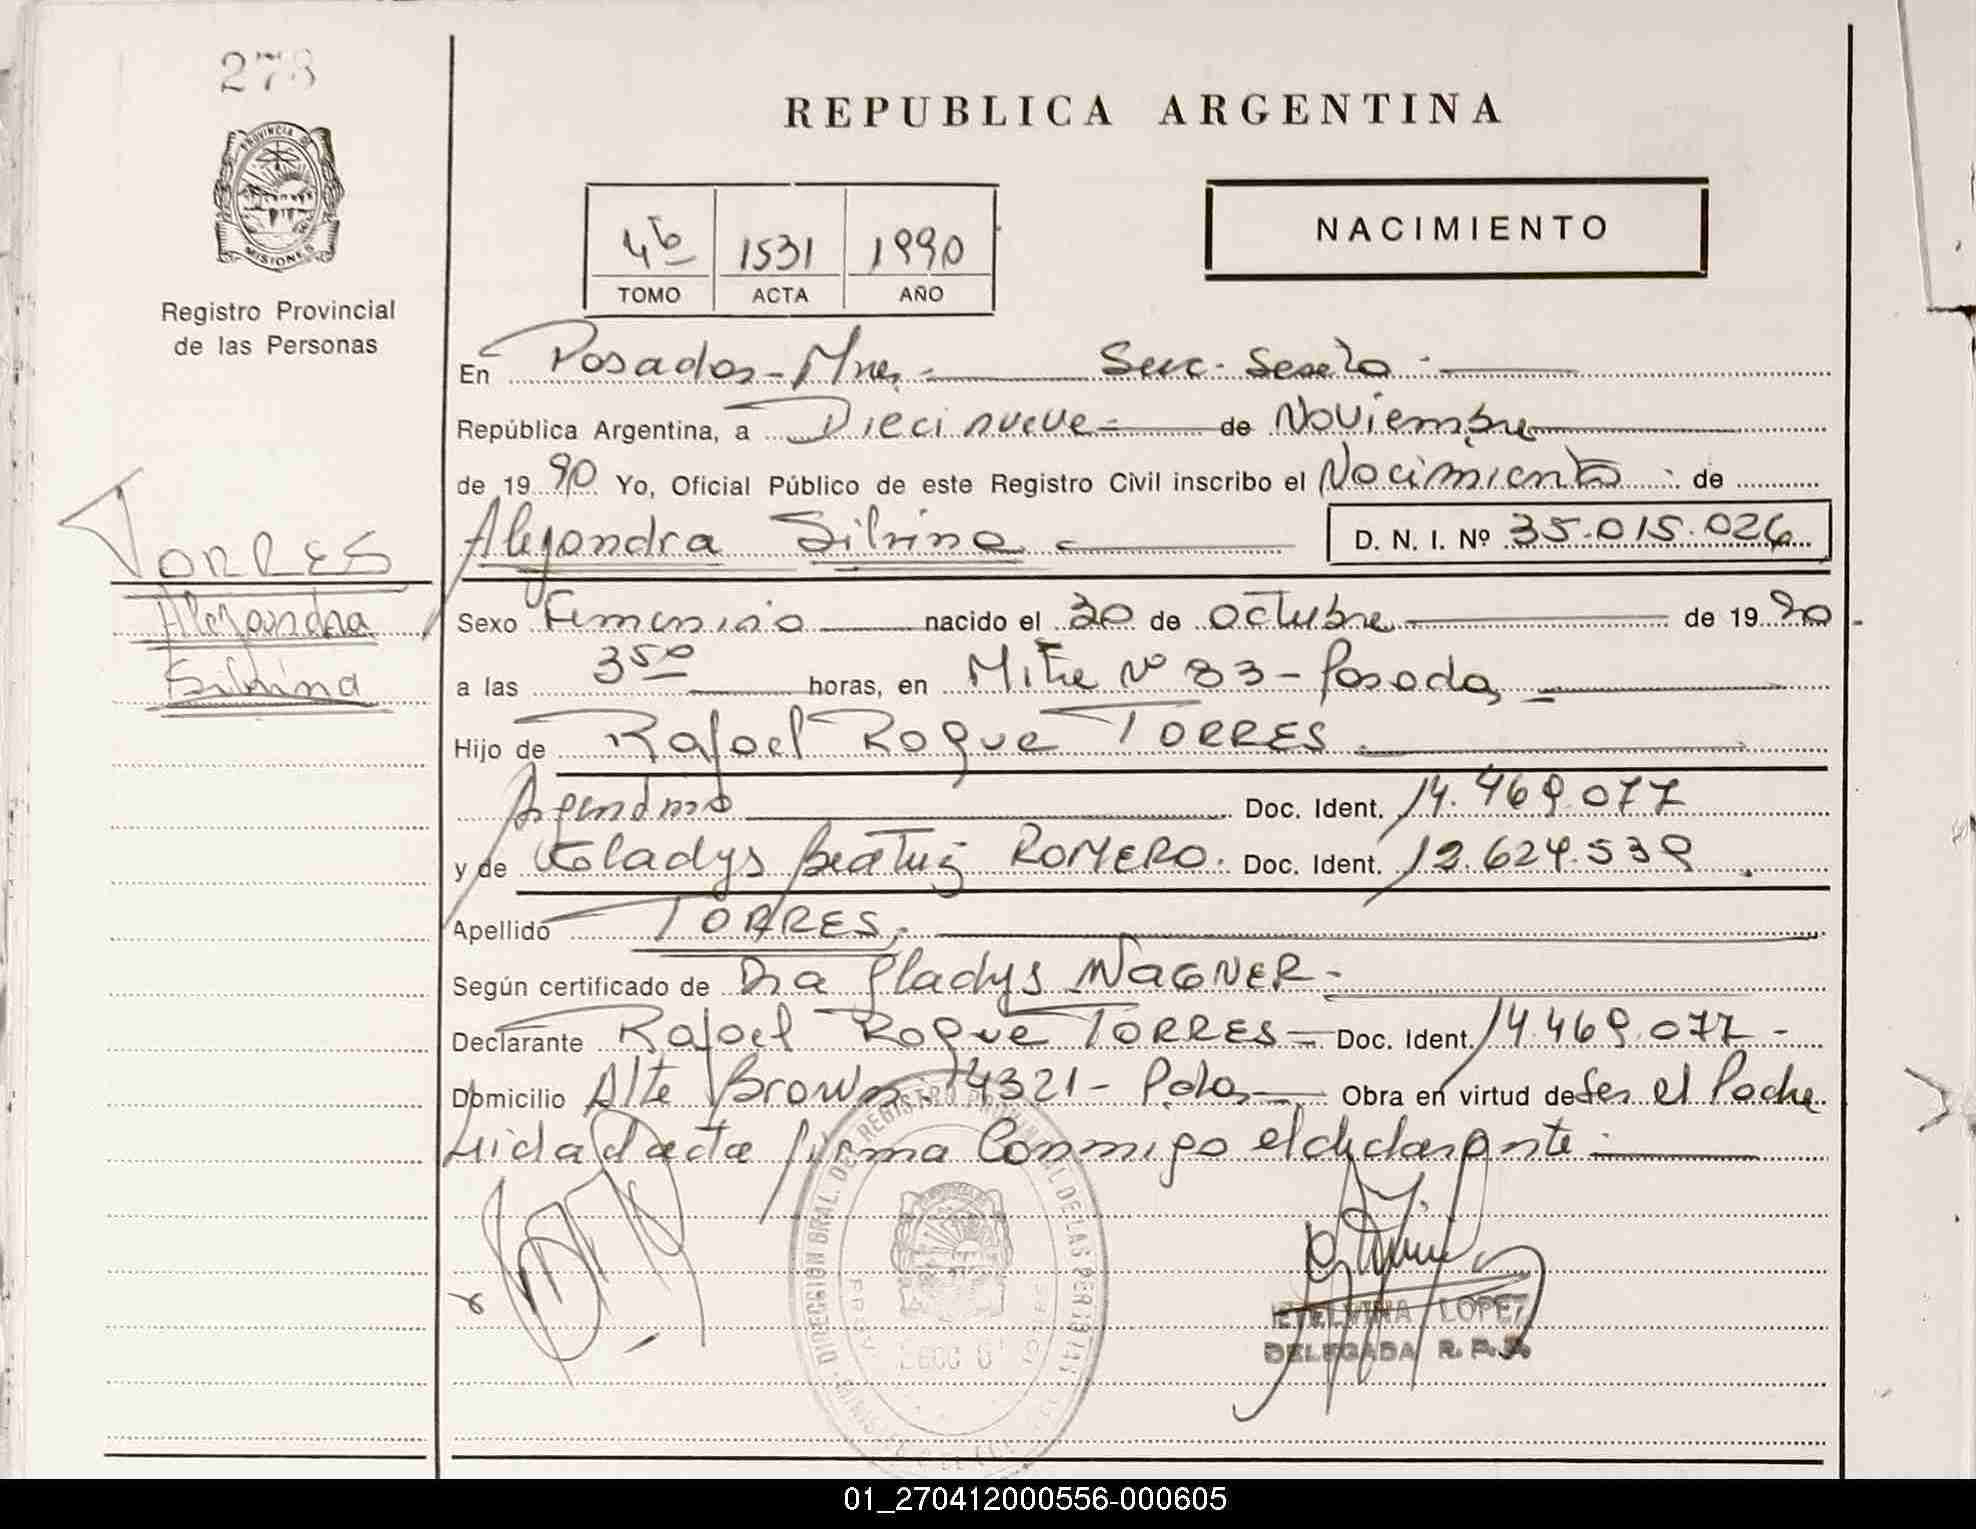 278
PROVINCIA DE
MISIONES
Registro Provincial
de las Personas
REPUBLICA ARGENTINA
1531 1990
TOMO ACTA AÑO
NACIMIENTO
En Posadas - Mnes. - Secc. Sexta . -
República Argentina, a Diecinueve - de Noviembre
de 1990 Yo, Oficial Público de este Registro Civil inscribo el Nacimiento de
Alejandra Silvina D. N. I. Nº 35.015.026
TORRES
Alejandra
Silvina
Sexo Femenino nacido el 30 de octubre de 1990
a las 3⁵⁰ horas, en Mitre Nº 83 - Posadas
Hijo de Rafael Roque TORRES
Argentino Doc. Ident. 14.469.077
y de Gladys Beatriz ROMERO. Doc. Ident. 12.624.539
Apellido TORRES. -
Según certificado de Dra Gladys WAGNER -
Declarante Rafael Roque TORRES - Doc. Ident. 14.469.077 -
Domicilio Alte Brown 4321 - Pdas Obra en virtud de Ser el Padre
Leida el acta firma Conmigo el declarante
DIRECCION GRAL. DEL REGISTRO PROVINCIAL DE LAS PERSONAS
ETELVINA LOPEZ
DELEGADA R. P. P.
01_270412000556-000605